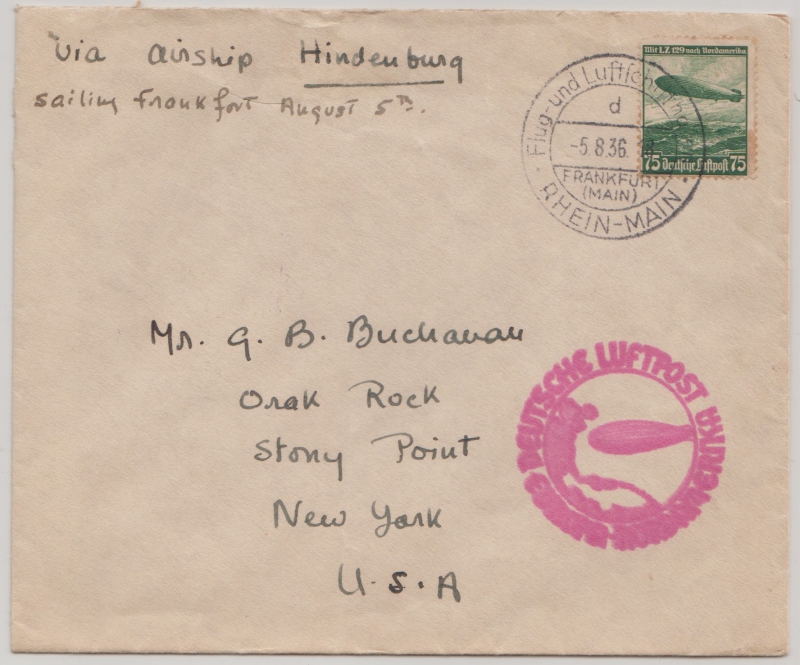 via airship Hindenburg
sailing Frankfort August 5th.
Mit LZ 129 nach Nordamerika
75 Deutsche Luftpost 75
Flug- und Luftschiffhafen
d
-5.8.36.
FRANKFURT
(MAIN)
RHEIN-MAIN
Mr. G. B. Buchanan
Orak Rock
Stony Point
New York
U.S.A
DEUTSCHE LUFTPOST